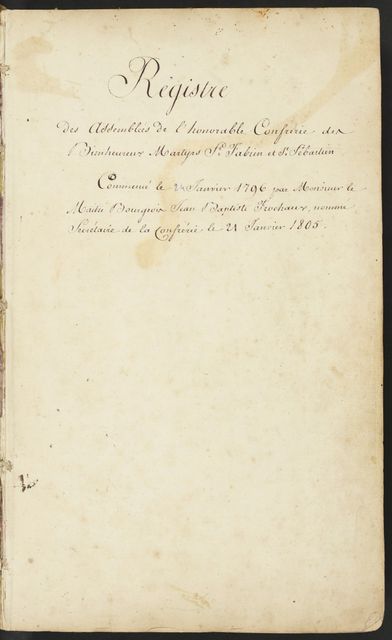 Régistre
des Assemblées de l'honorable Confrérie des
Bienheureux Martyrs St. Fabien et St. Sébastien
Commencé le Janvier 1796 par Monsieur le
Maitre Bourgeois Jean Baptiste Frochaux, nommé
Sécrétaire de la Confrérie le 21 Janvier 1805.